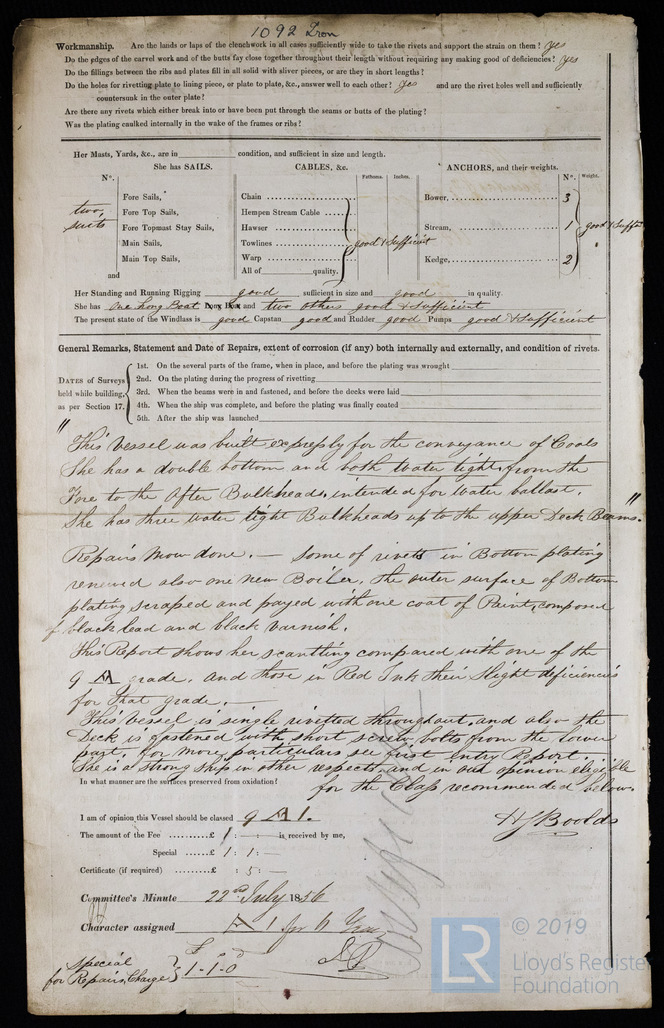 1092 Iron
Workmanship. Are the lands or laps of the clenchwork in all cases sufficiently wide to take the rivets and support the strain on them? yes
Do the edges of the carvel work and of the butts fay close together throughout their length without requiring any making good of deficiencies? yes
Do the fillings between the ribs and plates fill in all solid with sliver pieces, or are they in short lengths?
Do the holes for rivetting plate to lining piece, or plate to plate, &c., answer well to each other? yes and are the rivet holes well and sufficiently
countersunk in the outer plate?
Are there any rivets which either break into or have been put through the seams or butts of the plating?
Was the plating caulked internally in the wake of the frames or ribs?
Her Masts, Yards, &c., are in condition, and sufficient in size and length.
She has SAILS. CABLES, &c. Fathoms. Inches. ANCHORS, and their weights.
N°. N°. Weight.
Fore Sails, Chain Bower, 3
two suits Fore Top Sails, Hempen Stream Cable
Fore Topmast Stay Sails, Hawser Stream, 1 good & Sufft
Main Sails, Towlines good & Sufficient
Main Top Sails, Warp Kedge, 2
and All of quality.
Her Standing and Running Rigging good sufficient in size and good in quality.
She has one Long Boat Long Boat and two others good & sufficient
The present state of the Windlass is good Capstan good and Rudder good Pumps good & Sufficient
General Remarks, Statement and Date of Repairs, extent of corrosion (if any) both internally and externally, and condition of rivets.
DATES of Surveys held while building, as per Section 17.
1st. On the several parts of the frame, when in place, and before the plating was wrought
2nd. On the plating during the progress of rivetting
3rd. When the beams were in and fastened, and before the decks were laid
4th. When the ship was complete, and before the plating was finally coated
5th. After the ship was launched
" This Vessel was built expressly for the conveyance of Coals
She has a double bottom and both Water tight, from the
Fore to the After Bulkheads, intended for water ballast.
She has three water tight Bulkheads up to the upper Deck Beams. "
Repairs Now done. — Some of rivets in Bottom plating
renewed also one new Boiler. The outer surface of Bottom
plating scraped and payed with one coat of Paint, composed
of black lead and black varnish.
This Report shows her scantling compared with one of the
9 A grade. and those in Red Ink their slight deficiencies
for that grade. —
This Vessel is single rivetted throughout. and also the
Deck is fastened with short screw bolts from the lower
part, for more particulars see first Entry Report.
She is a strong ship in other respects, and in our opinion eligible
In what manner are the surfaces preserved from oxidation? for the Class recommended below.
I am of opinion this Vessel should be classed 9 A 1. H J Boolds
The amount of the Fee £ 1 : - : - is received by me,
Special £ 1 : 1 : -
Certificate (if required) £ : 5 : -
Committee's Minute 22nd July 1856
Character assigned A 1 for 6 Years
Special for Repairs Charge } £ s d 1 - 1 - 0
LR © 2019
Lloyd's Register
Foundation